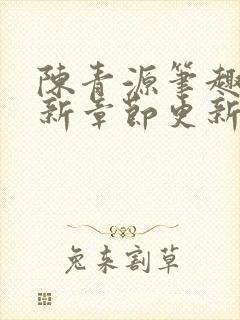 陳青源筆趣
新章節更新
兔来割草